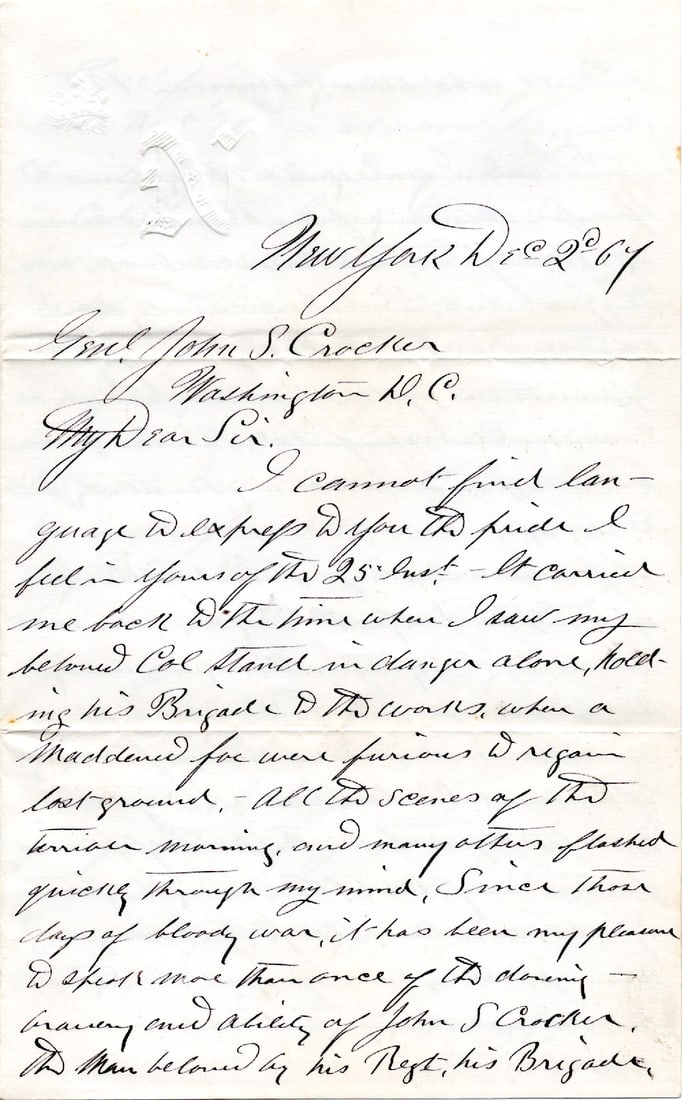 New York Dec 2d 67
Genl. John S. Crocker
Washington D. C.
My Dear Sir.
I cannot find lan-
guage to express to you the pride I
feel in yours of the 25" Inst. - It carried
me back to the time when I saw my
beloved Col stand in danger alone, hold-
ing his Brigade to the works, when a
maddened foe were furious to regain
lost ground, - All the scenes of the
terrible morning, and many others flashed
quickly through my mind, Since those
days of bloody war, it has been my pleasure
to speak more than once of the daring -
bravery and ability of John S Crocker.
the man beloved by his Regt, his Brigade,